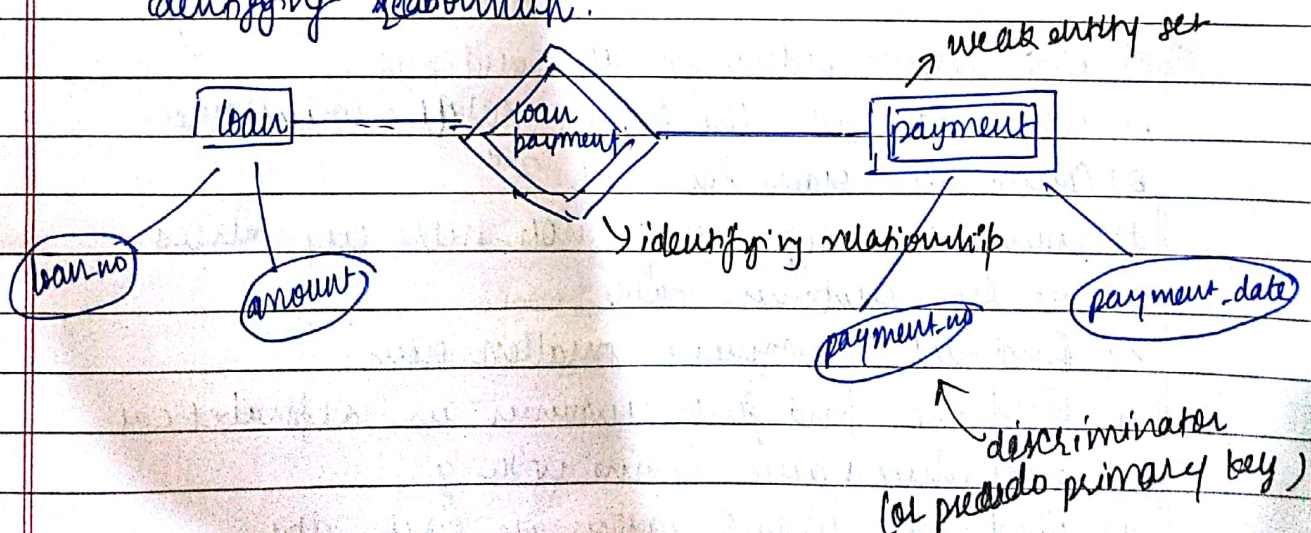 identifying relationship.
weak entity set
loan
loan
payment
payment
identifying relationship
loan_no
amount
payment_no
payment_date
discriminator
(or pseudo primary key)